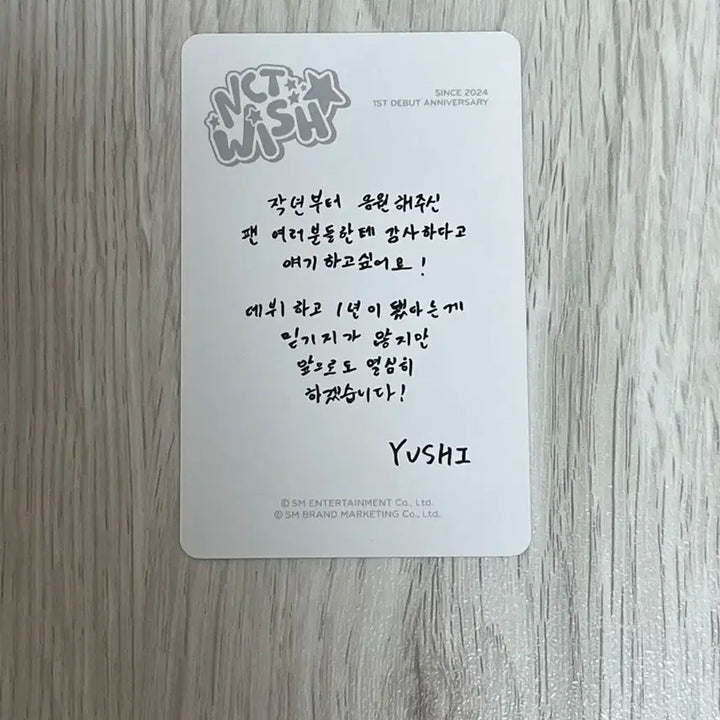 NCT
WISH
SINCE 2024
1ST DEBUT ANNIVERSARY
작년부터 응원해주신
팬 여러분들한테 감사하다고
얘기 하고싶어요!
데뷔 하고 1년이 됐다는게
믿기지가 않지만
앞으로도 열심히
하겠습니다!
YUSHI
© SM ENTERTAINMENT Co., Ltd.
© SM BRAND MARKETING Co., Ltd.